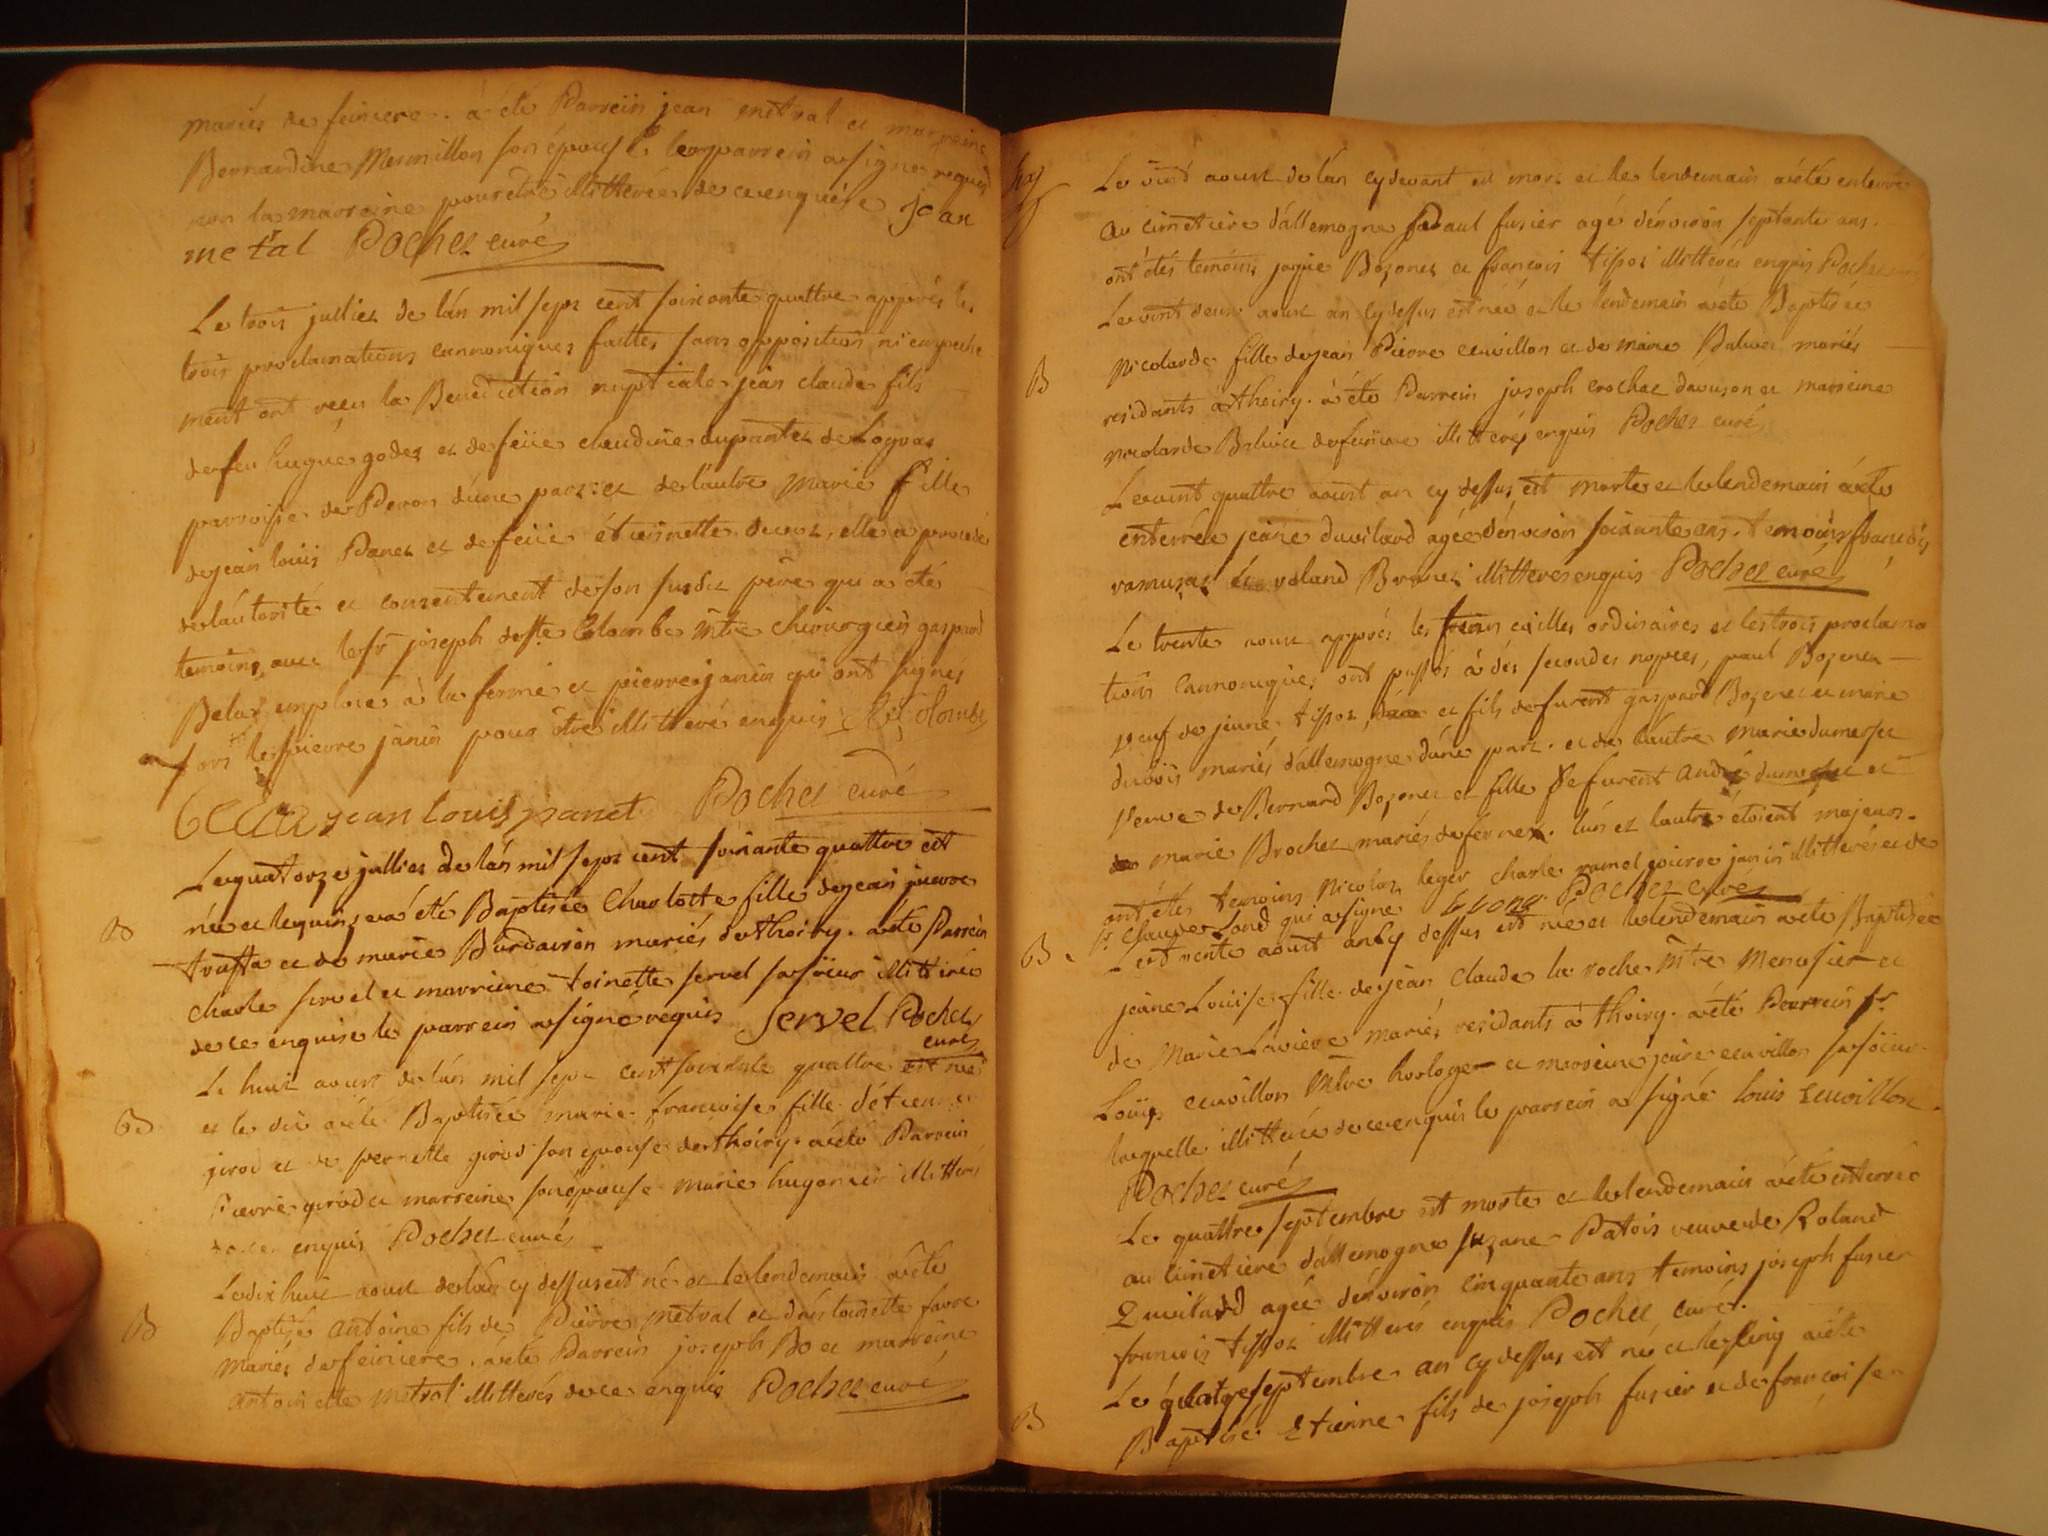 mariés de feiniere. a été Parrein jean métral et marreine
Bernardine Mermillon son épouse le parrein a signé requis
non la marreine pour etre illitterée de ce enquise jean
metral Pochet curé
Le trois julliet de lán mil sept cent soixante quattre apprés les
trois proclamations cannoniques faittes sans opposition ni empeche
ment ont reçu la Benediction nuptiale jean claude fils
de feu hugue godet et de feüe claudine duprantet de Logras
parroisse de Peron dúne part: et de láutre Marie fille
de jean louis Panet et de feüe étiennette ducrot, elle a procedé
de láutorité et consentement de son susdit pére qui a été
temoins avec le sr joseph de ste Colombe mtre chirurgien gaspard
Belay emploié à la ferme et pierre janin qui ont signes
fors le pierre janin pour être illitteré enquis Ste Colombe
jean louis panet Pochet curé
Le quatorze julliet de lán mil sept cent soixante quattre est
née et le quinze a été Baptisée Charlotte fille de jean pierre
truffa et de marie Burdairon mariés de thoiry. a été Parrein
charle servel et marreine toinette servel sa soeur illitirée
de ce enquise le parrein a signé requis Servel Pochet
curé
Le huit aoust de lán mil sept cent soixante quattre est née
et le dix a été Baptisée marie françoise fille détienne
girod et de pernette girod son epouse de thoiry. a été Parrein
Pierre girod et marreine son épouse marie hugonier illitterés
de ce enquis Pochet curé
B
Le dixhuit aoust de lán cy dessus est né et le lendemain a été
B
Baptisé antoine fils de Pierre métral et dántoinette favre
Mariés de feiniere. a été Parrein joseph Bo et marreine
antoinette métral illitterés de ce enquis Pochet curé
Le vint aoust de lán cy devant est mort et le lendemain a été enterré
au cimetiere dállemogne Paul fusier agé dénviron septante ans.
ont étés temoins jaque Bozonet et françois tissot illitterés enquis Pochet curé
Le vint deux aoust an cy dessus est née et le lendemain a été Baptisée
B
Nicolarde fille de jean Pierre ecuvillon et de marie Baluce mariés
residants à thoiry. a été Parrein joseph crochat davuson et marreine
nicolarde Baluce de feniere illitterés enquis Pochet curé
Le vint quattre aoust an cy dessus est morte et le lendemain a été
enterrée jeane duvilard agée dénviron soixante ans. temoins françois
ramusat et roland Brunet illitterés enquis Pochet curé
Le trente aoust apprés les fiancailles ordinaires et les trois proclama
tions cannoniques ont passés à des secondes nopces, paul Bozonet
veuf de jeane tissot, et fils de furent gaspard Bozonet et marie
dubois mariés dállemogne dúne part. et de láutre marie dumerset
veuve de Bernard Bozonet et fille de furent André dumerset et
marie Brochet mariés de fernex. lún et lautre étoient majeurs.
ont étés temoins nicolas leger charle ramel pierre janin illitterés et de
sr claude Lond qui a signé Pochet curé
B
Le d trente aoust an cy dessus est née et le lendemain a été Baptisée
jeane Louise fille de jean Claude la roche mtre Menusier et
de Marie Laviere mariés residants à thoiry. a été Parrein sr
Louis ecuvillon Mtre horloger et marreine jeane ecuvillon sa soeur
laquelle illitterée de ce enquis le parrein a signé louis Ecuvillon
Pochet curé
Le quattre septembre est morte et le lendemain a été enterrée
au cimetiere dállemogne suzane Patois veuve de Roland
Duvilard agée dénviron cinquante ans temoins joseph fusier
francois tissot illitterés enquis Pochet curé.
Le quatre septembre an cy dessus est né et le cinq a été
B
Baptisé Etienne fils de joseph fusier et de françoise